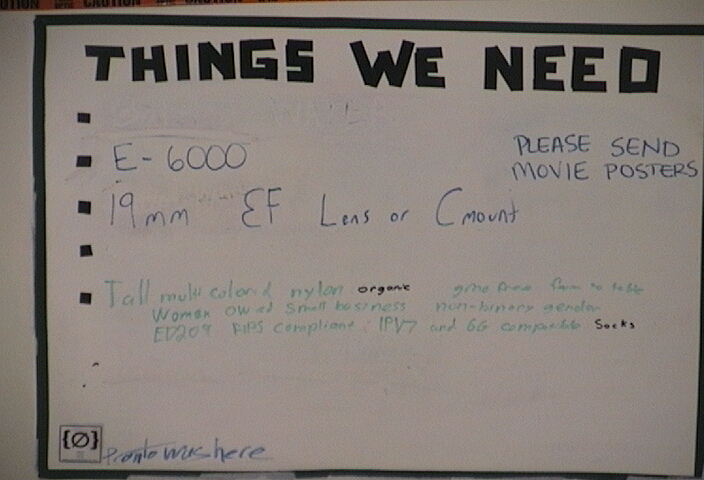 CAUTION CAUTION
THINGS WE NEED
E-6000
PLEASE SEND
MOVIE POSTERS
19mm EF Lens or C mount
Tall multi colored nylon organic farm to table
Woman owned small business non-binary gender
ED209 FIPS compliant IPV7 and 6G compatible Socks
{Ø}
Pronto was here